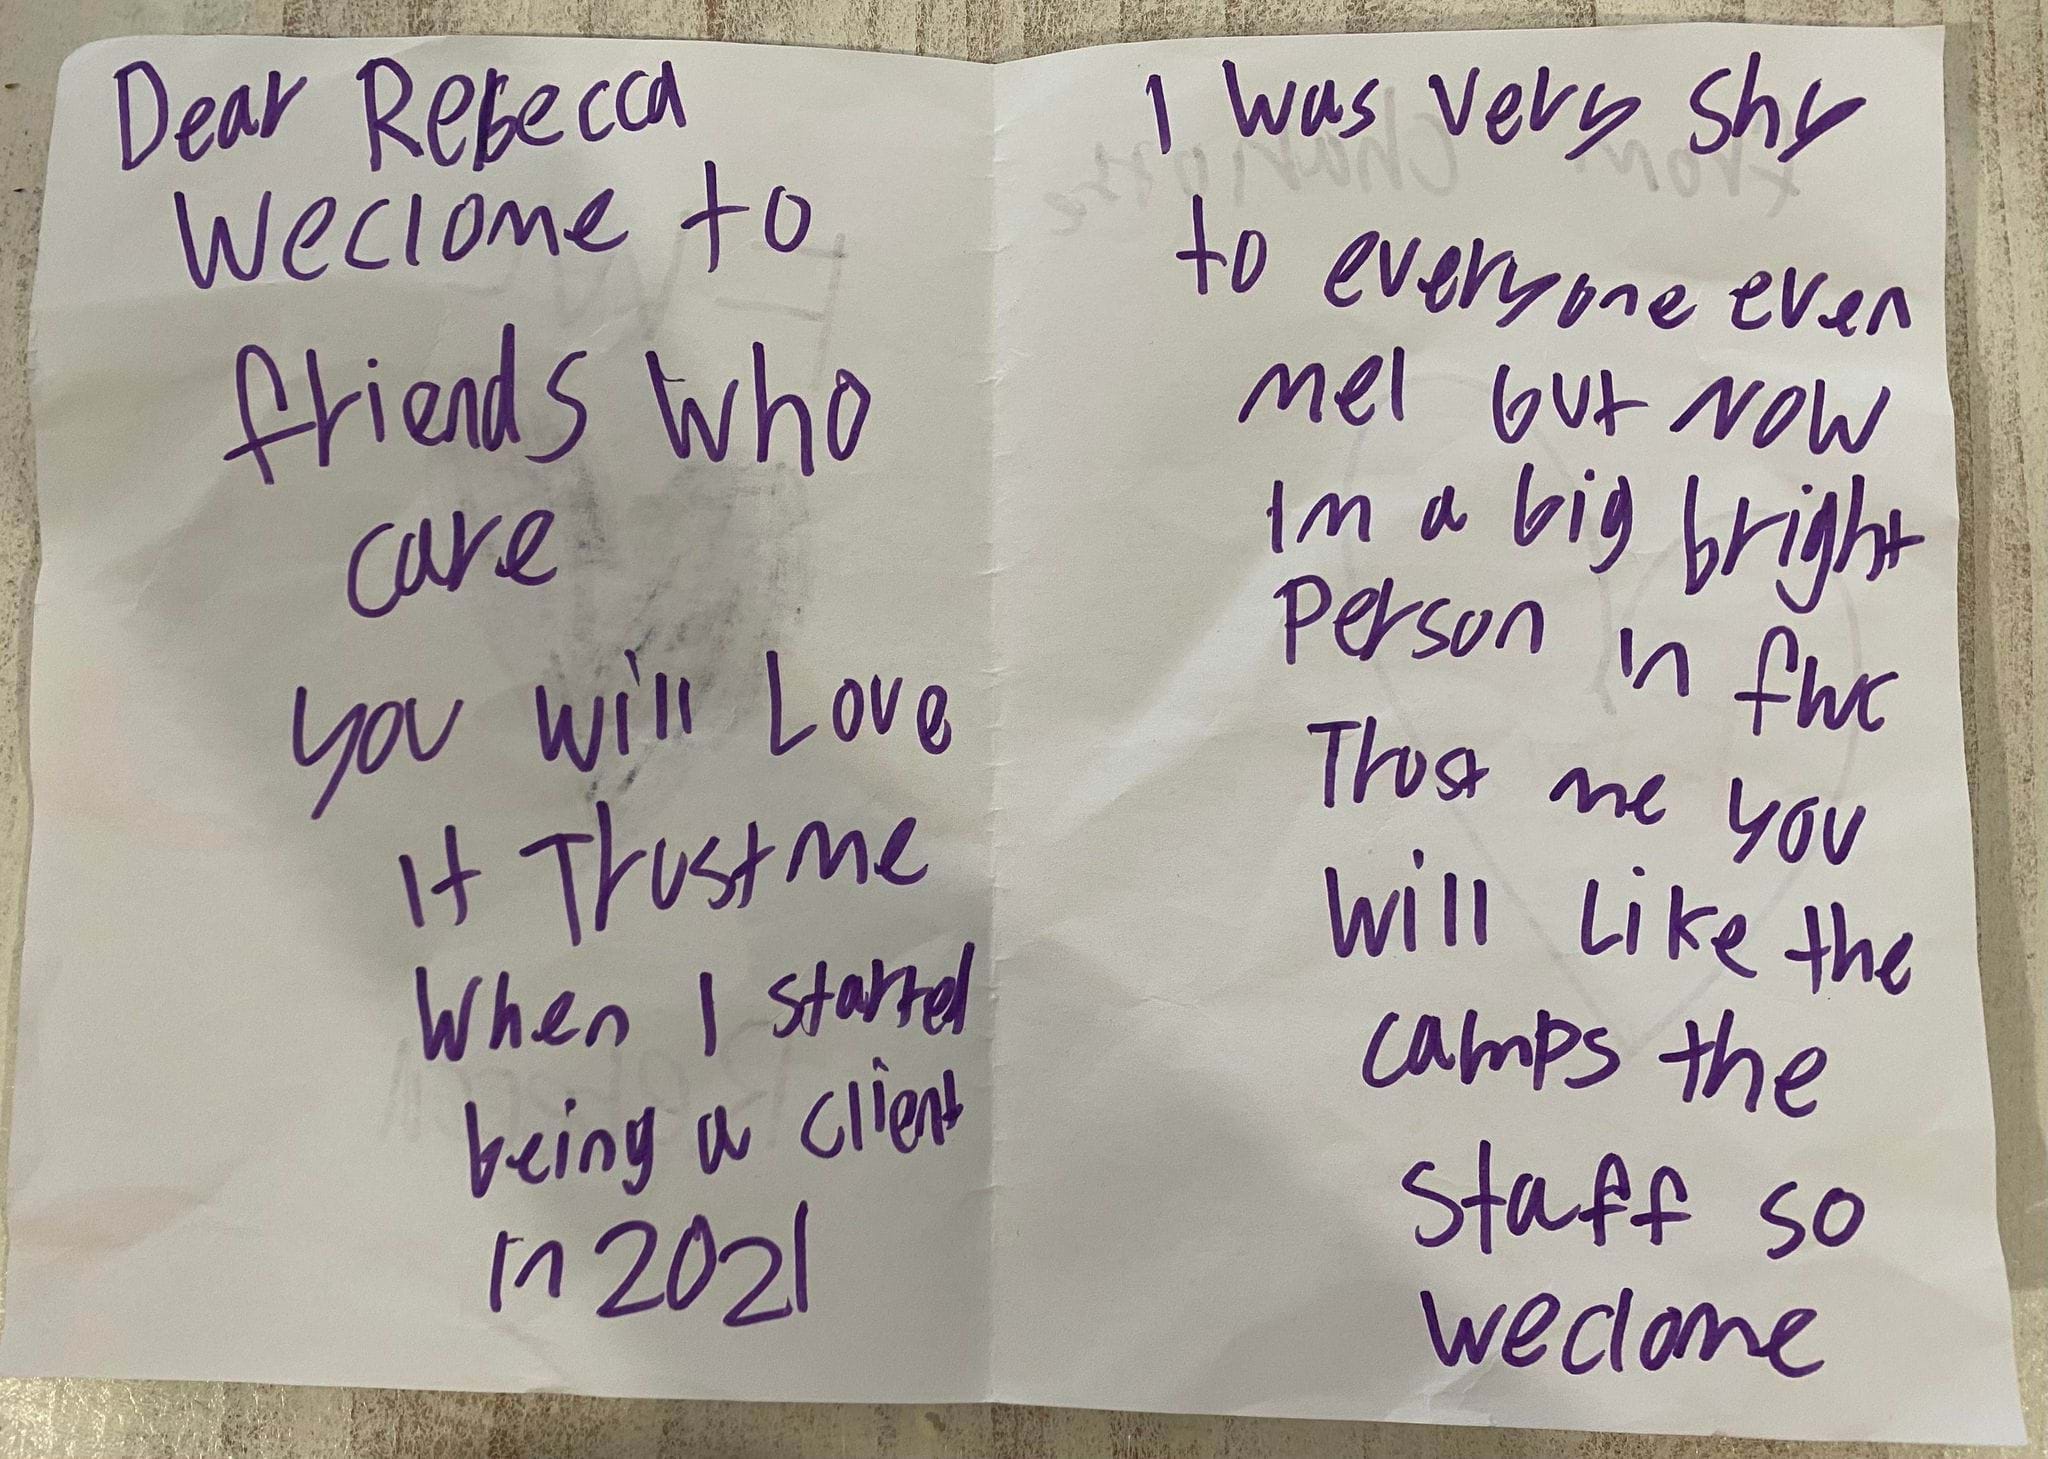 Dear Rebecca
Weclome to
friends who
care
you will Love
it Trust me
When I started
being a client
in 2021
I was very shy
to everyone even
mel but now
im a big bright
Person in fwc
Trust me you
will Like the
camps the
staff so
weclome
from Charlotte